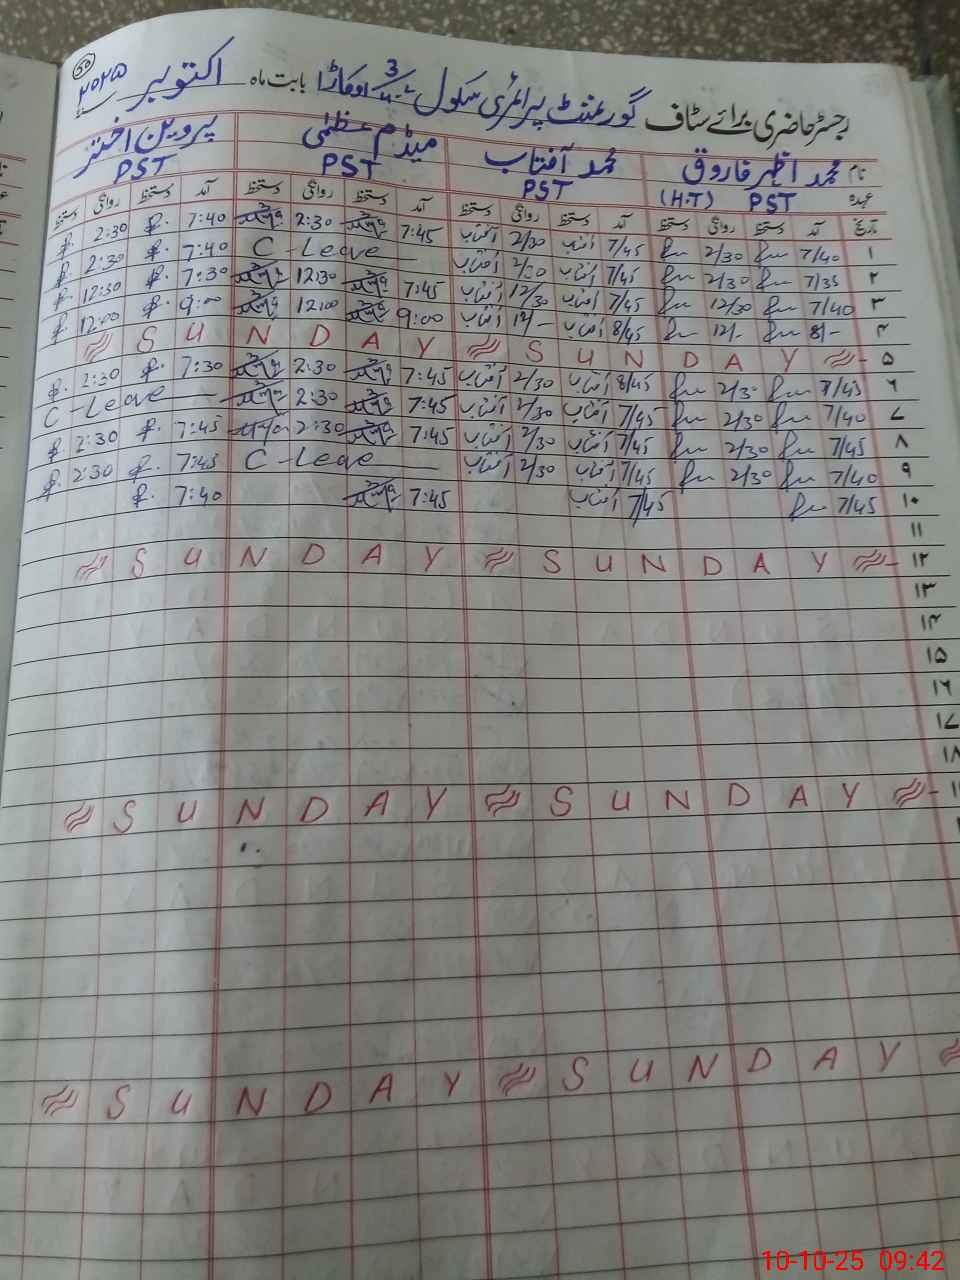 ۵۰
رجسٹر حاضری برائے سٹاف گورنمنٹ پرائمری سکول اوکاڑا بابت ماہ اکتوبر سنہ ۲۰۲۵
نام محمد اظہر فاروق محمد آفتاب میڈم عظمٰی پروین اختر
عہدہ PST (H.T) PST PST PST
تاریخ آمد دستخط روانگی دستخط آمد دستخط روانگی دستخط آمد دستخط روانگی دستخط آمد دستخط روانگی دستخط
۱ 7/40 2/30 7/45 آفتاب 2/30 آفتاب 7:45 2:30 7:40 2:30
۲ 7/35 2/30 7/45 آفتاب آفتاب C-Leave 7:40 2:30
۳ 7/40 12/30 7/45 آفتاب 12/30 آفتاب 7:45 12:30 7:30 12:30
۴ 8/- 12/- 8/45 آفتاب 12/- آفتاب 9:00 12:00 9:00 12:00
۵ S U N D A Y S U N D A Y
۶ 7/45 2/30 8/45 آفتاب 2/30 آفتاب 7:45 2:30 7:30 2:30
۷ 7/40 2/30 7/45 آفتاب 2/30 آفتاب 7:45 2:30 C-Leave
۸ 7/45 2/30 7/45 آفتاب 2/30 آفتاب 7:45 2:30 7:45 2:30
۹ 7/40 2/30 7/45 آفتاب 2/30 آفتاب C-Leave 7:45 2:30
۱۰ 7/45 7/45 آفتاب 7:45 7:40
۱۱
۱۲ S U N D A Y S U N D A Y
۱۳
۱۴
۱۵
۱۶
۱۷
۱۸
S U N D A Y S U N D A Y
S U N D A Y S U N D A Y
10-10-25 09:42